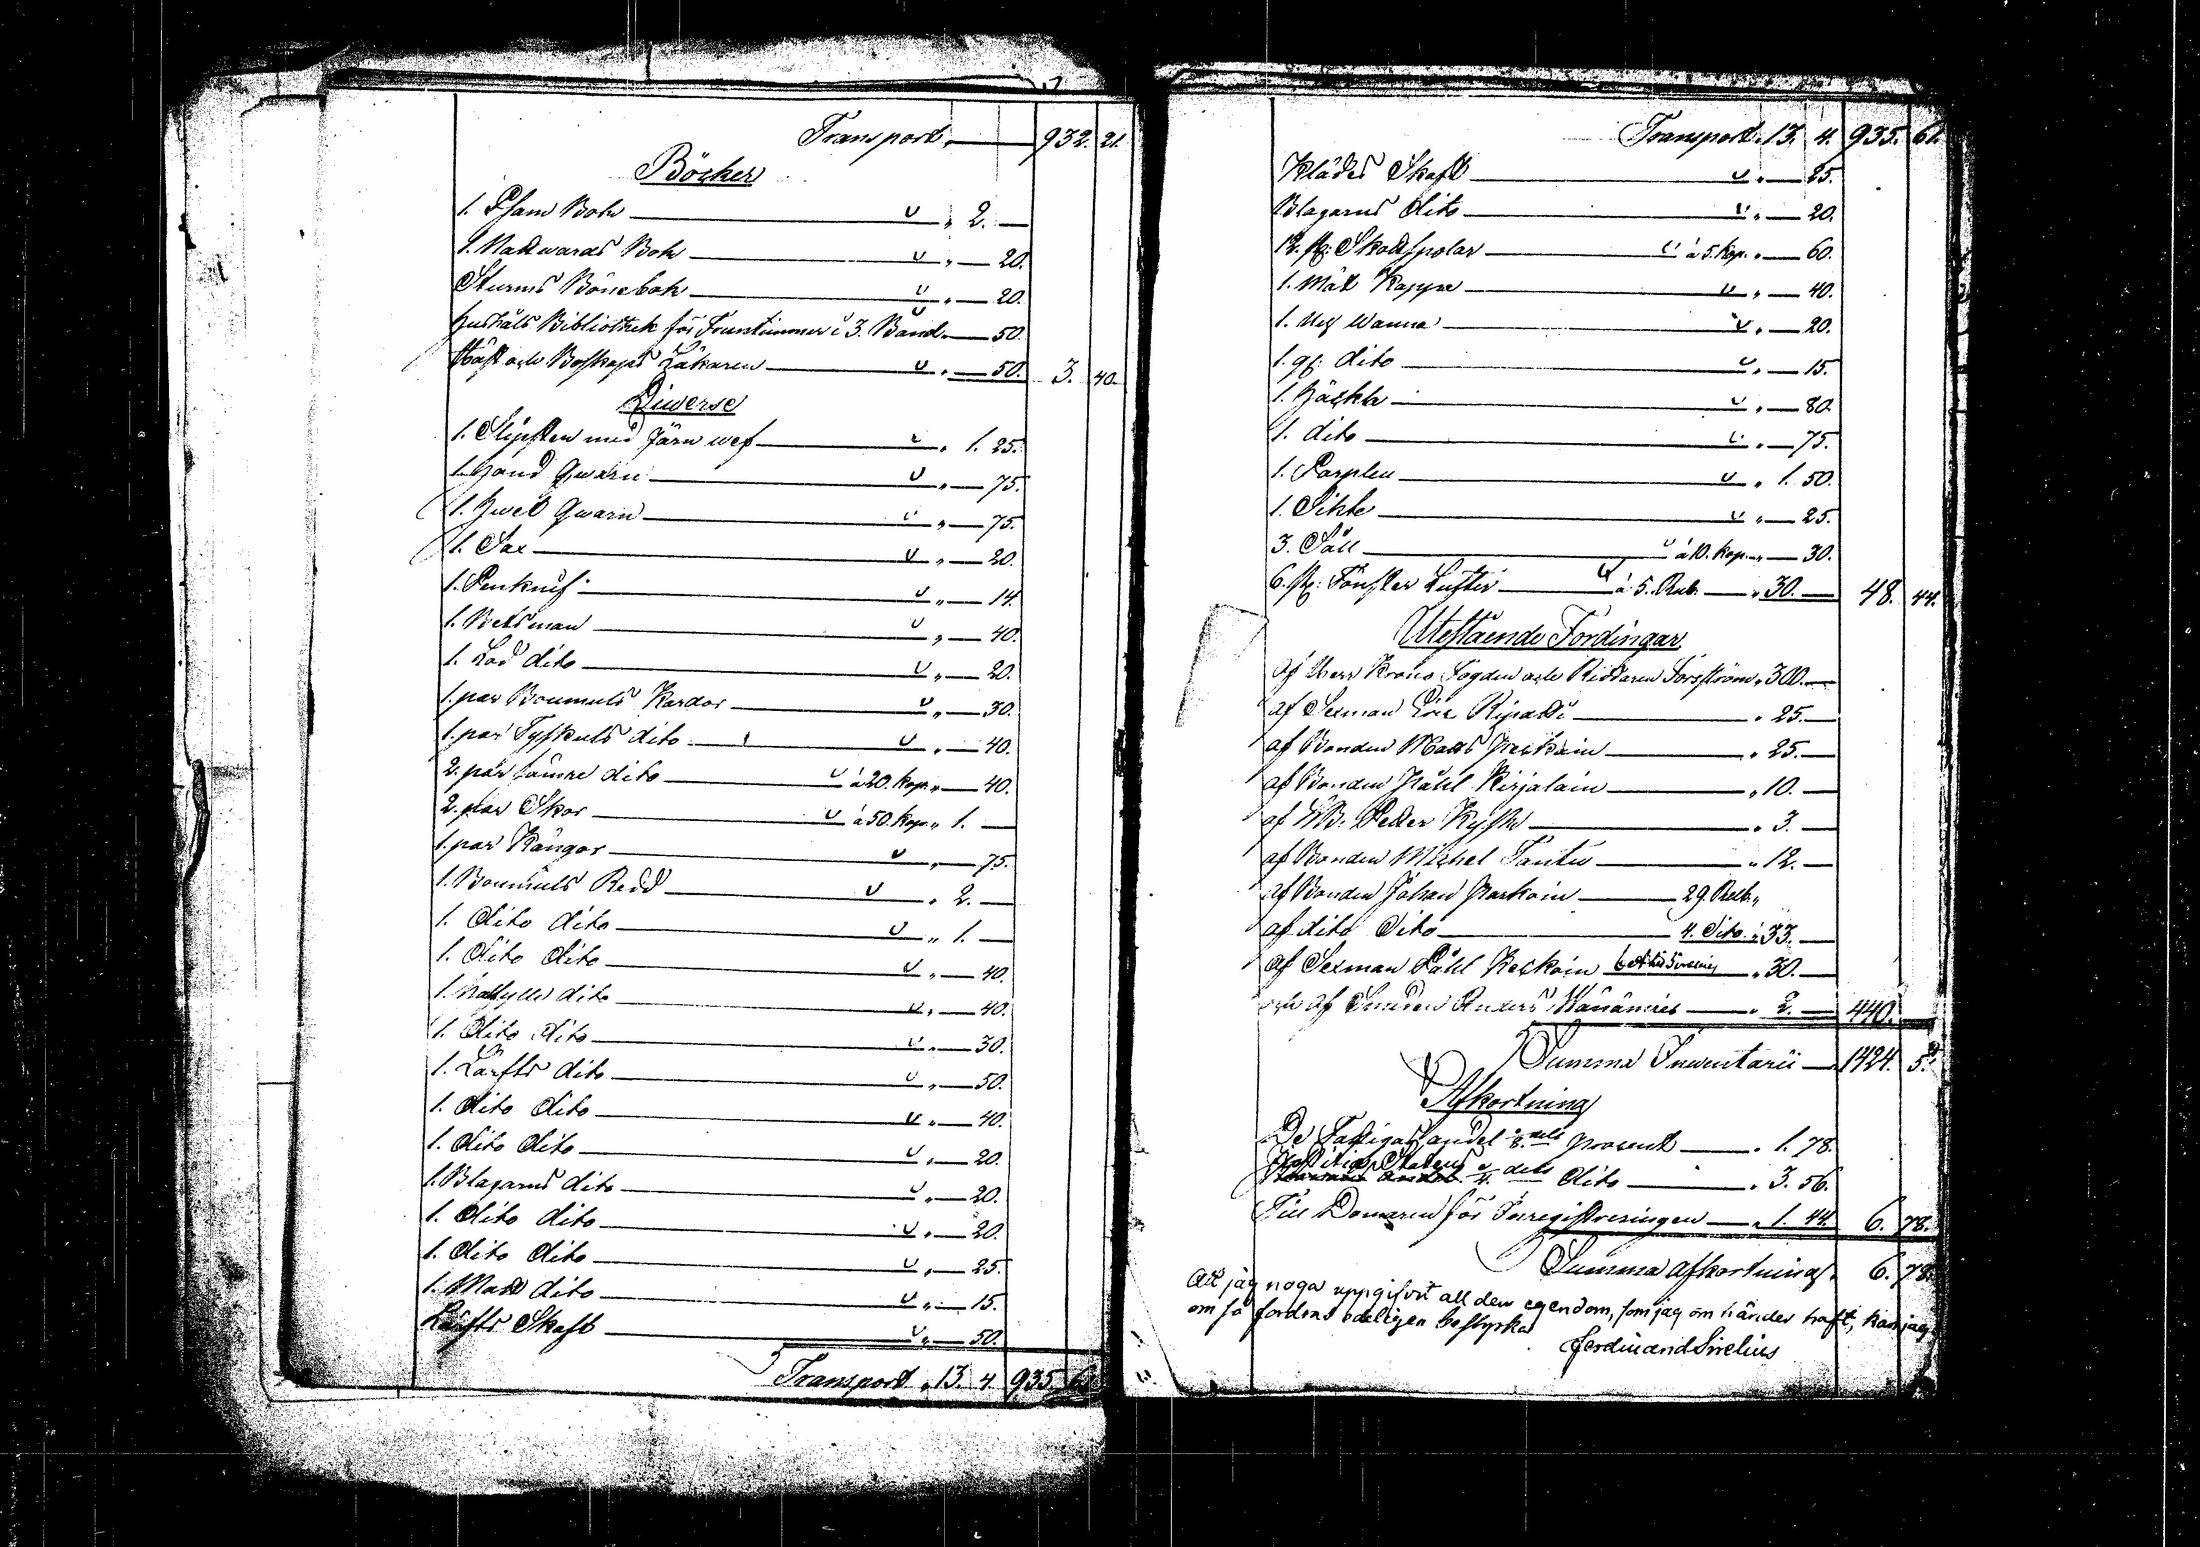 Transport. — 932. 21.
Böcker
1. Psam Bok — " 2. —
1. Nattwards Bok — " — 20.
Sturms Bönebok — " — 20.
Hushåls Bibliothek för Fruntimmer i 3. Band " — 50.
Häst och Boskaps Läkaren — " — 50. 3. 40.
Diverse
1. Slipsten med Järn wef — " 1. 25.
1. Hand Qwarn — " — 75.
1. Hwet Qwarn — " — 75.
1. Sax — " — 20.
1. Penknif — " — 14.
1. Betsman — " — 40.
1. Lod dito — " — 20.
1. par Boumuls Kardor — " — 30.
1. par Tyskuls dito — " — 40.
2. par sämre dito — á 20. kop. " — 40.
2. par Skor — á 50. kop. " 1. —
1. par Kängor — " — 75.
1. Boumuls Redd — " 2. —
1. Dito dito — " 1. —
1. Dito Dito — " — 40.
1. dito — " — 40.
1. Dito dito — " — 30.
1. Lärfts dito — " — 50.
1. Dito Dito — " — 40.
1. Dito Dito — " — 20.
1. Blagarns dito — " — 20.
1. Dito dito — " — 20.
1. Dito Dito — " — 25.
1. Matt dito — " — 15.
Lärfts Skaft — " — 50.
Transport. " 13. 4 935. 61.
Transport. " 13. 4. 935. 61.
Klädes Skaft — " — 25.
Blagarns Dito — " — 20.
12. st: Skottspolar — á 5. kop. " — 60.
1. Mät Kappe — " — 40.
1. Wanna — " — 20.
1. gl: dito — " — 15.
1. Häckla — " — 80.
1. dito — " — 75.
1. Parplu — " 1. 50.
1. Sikte — " — 25.
3. Såll — á 10. kop. " — 30.
6. st: Fönster Lufter — á 5. Rub. — " 30. — 48. 44.
Utestående Fordingar
af Herr Krono Fogden och Riddaren Forsström " 300. —
af Sexman Eric Ripatti — " 25. —
af Bonden Matts — " 25. —
af Bonden Påhl Kirjalain — " 10. —
af Petter — " 3. —
af Bonden Michel Tanttu — " 12. —
af Bonden Johan — 29. Rub. "
af dito Dito — 4. Dito " 33. —
af Sexman Påhl — " 30. —
och af Smeden Anders — " 2. — 440.
Summa Inventarii — 1424. 5
Afkortning
De Fattigas andel 8.dels prosent — " 1. 78.
4. dels Dito — " 3. 56.
Till Domaren för Inregistreringen — " 1. 44. 6. 78.
Summa afkortning. 6. 78.
Att jag noga uppgifvit all den egendom, som jag om händer haft, kan jag
om så fordras edeligen bestyrka
Ferdinand Sirelius